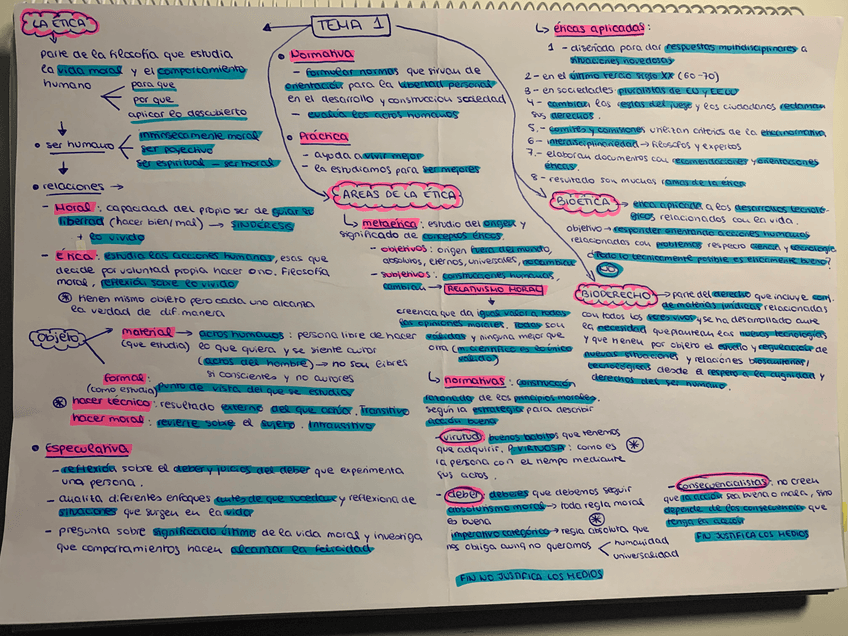 LA ÉTICA
parte de la filosofía que estudia
la vida moral y el comportamiento
humano
para que
por que
aplicar lo descubierto
ser humano
intrínsecamente moral
ser proyectivo
ser espiritual - ser moral
relaciones →
- Moral: capacidad del propio ser de guiar su
libertad (hacer bien/mal) → SINDÉRESIS
y lo vivido
- ética: estudia las acciones humanas, esas que
decide por voluntad propia hacer o no. Filosofía
moral, reflexión sobre lo vivido
* tienen mismo objeto pero cada uno alcanza
la verdad de dif. manera
Objeto
material → actos humanos: persona libre de hacer
(que estudia) lo que quiera y se siente autor
(actos del hombre) → no son libres
si conscientes y no autores
formal:
(como estudia) punto de vista del que se estudia
* hacer técnico: resultado externo del que actúa. Transitivo
hacer moral: revierte sobre el sujeto. Intransitivo
• Especulativa
- reflexión sobre el deber y juicios del deber que experimenta
una persona.
- analiza diferentes enfoques antes de que sucedan y reflexiona de
situaciones que surgen en la vida
- pregunta sobre significado último de la vida moral y investiga
que comportamientos hacen alcanzar la felicidad
TEMA 1
• Normativa
- formular normas que sirvan de
orientación para la libertad personal
en el desarrollo y construcción sociedad
- evalúa los actos humanos
• Práctica
- ayuda a vivir mejor
- la estudiamos para ser mejores
ÁREAS DE LA ÉTICA
↳ metaética: estudio del origen y
significado de conceptos éticos
- objetivos: origen fuera del mundo,
absolutos, eternos, universales, no cambian
- subjetivos: construcciones humanas,
cambian → RELATIVISMO MORAL
creencia que da igual valor a todas
las opiniones morales. Todas son
válidas y ninguna mejor que
otra (m. científico es lo único
válido)
↳ normativas: construcción
razonada de los principios morales.
según la estrategia para describir
acción buena
- virtud: buenos hábitos que tenemos
que adquirir. P. VIRTUOSA: como es *
la persona con el tiempo mediante
sus actos.
- deber: deberes que debemos seguir
absolutismo moral → toda regla moral
es buena *
imperativo categórico → regla absoluta que
nos obliga aunq no queramos
humanidad
universalidad
FIN NO JUSTIFICA LOS MEDIOS
- consecuencialistas: no creen
que la acción sea buena o mala, sino
depende de las consecuencias que
tenga la acción
FIN JUSTIFICA LOS MEDIOS
↳ éticas aplicadas:
1 - diseñada para dar respuestas multidisciplinares a
situaciones novedosas
2 - en el último tercio siglo XX (60-70)
3 - en sociedades pluralistas de EU y EEUU
4 - cambian las reglas del juego y los ciudadanos reclaman
sus derechos.
5 - comités y comisiones utilizan criterios de la ética normativa
6 - interdisciplinariedad → filósofos y expertos
7 - elaboran documentos con recomendaciones y orientaciones
éticas.
8 - resultado son muchas ramas de la ética
BIOÉTICA → ética aplicada a los desarrollos tecnoló-
gicos relacionados con la vida.
objetivo → responder orientando acciones humanas
relacionadas con problemas respecto ciencia y tecnología
¿Todo lo técnicamente posible es éticamente bueno?
BIODERECHO → parte del derecho que incluye conj.
de materias jurídicas relacionadas
con todos los seres vivos y se ha desarrollado ante
la necesidad que plantean las nuevas tecnologías
y que tienen por objeto el estudio y regulación de
nuevas situaciones y relaciones biosanitarias/
tecnológicas desde el respeto a la dignidad y
derechos del ser humano.